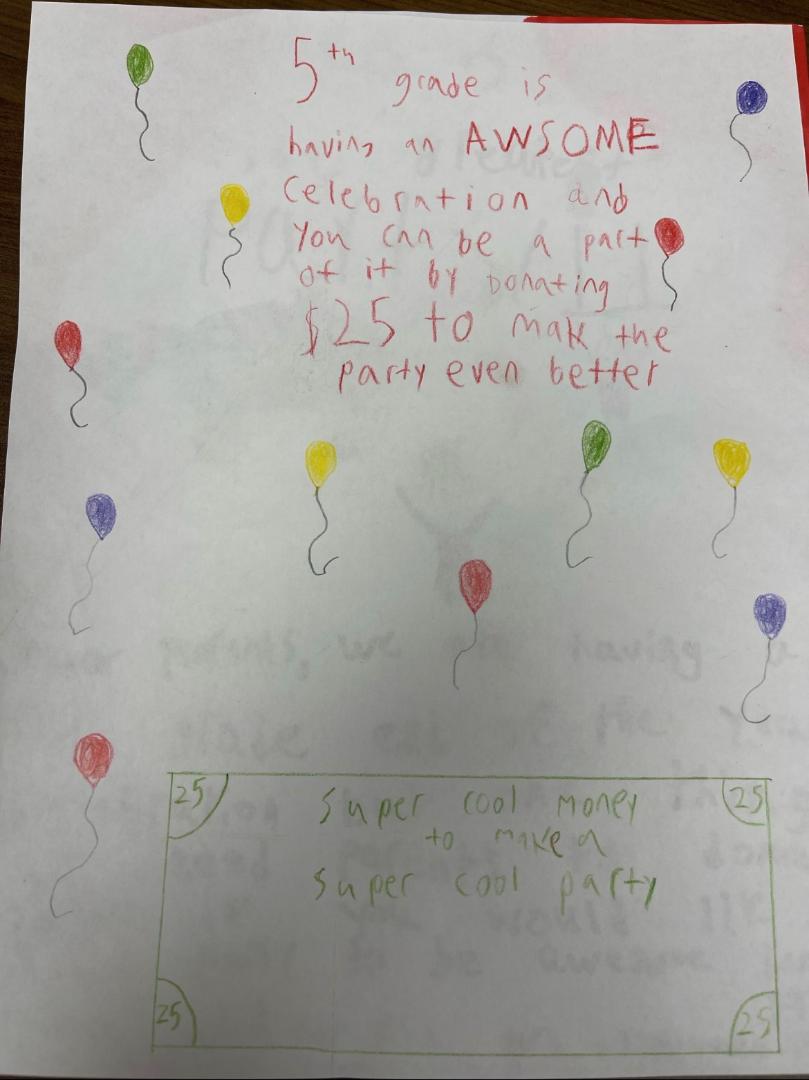 5th grade is
having an AWSOME
celebration and
you can be a part
of it by Donating
$25 to make the
party even better
25
super cool money
25
to make a
super cool party
25
25